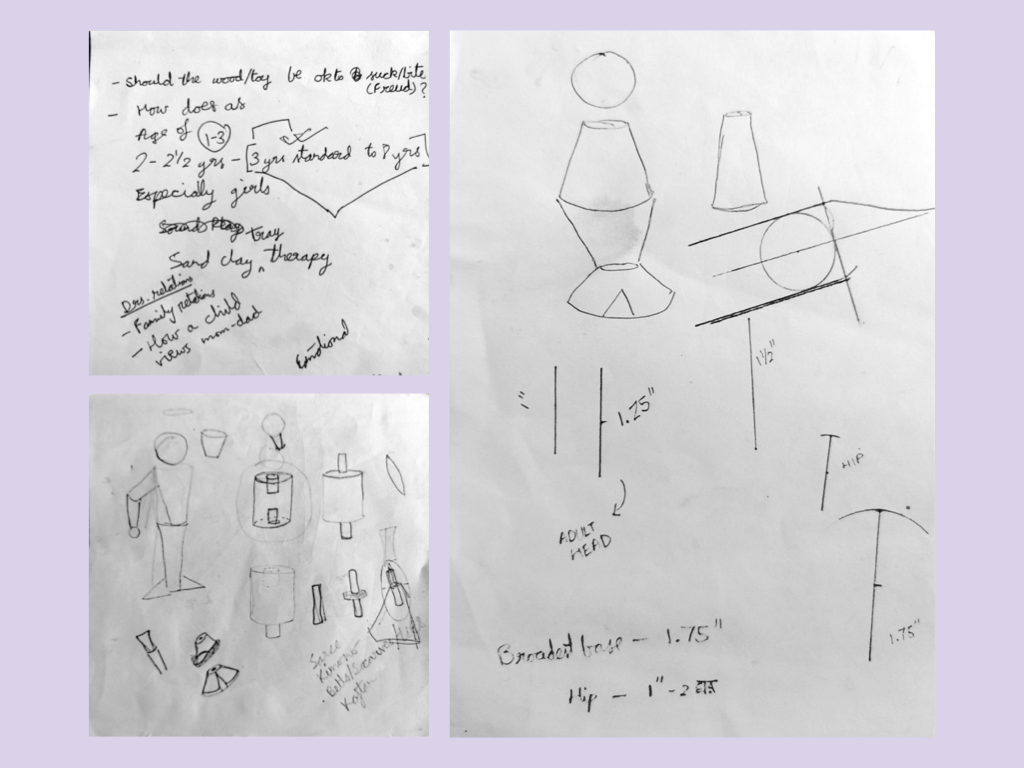 - Should the wood/toy be ok to suck/bite
(Freud) ?
- How does as
Age of 1-3
2 - 2 1/2 yrs - [3 yrs standard to 8 yrs]
Especially girls
tray
Sand clay ^ therapy
Drs. relations
- Family relations
- How a child
views mom-dad
Emotional
Saree
Kimono
Kaftan
1 1/2"
1.25"
HIP
ADULT
HEAD
1.75"
Broadest base - 1.75"
Hip - 1" - 2